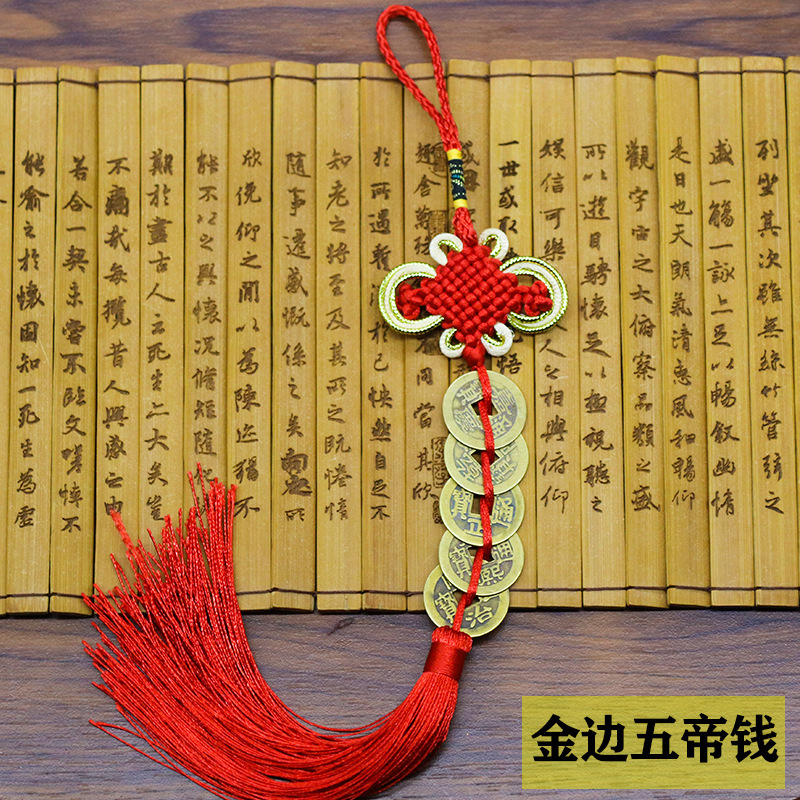 列坐其次雖無絲竹管弦之
盛一觴一詠亦足以暢敘幽情
是日也天朗氣清惠風和暢仰
觀宇宙之大俯察品類之盛
所以遊目騁懷足以極視聽之
娛信可樂之相與俯仰
一世或取悟
趣舍萬同當其欣
於所遇暫於己怏然自足不
知老之將至及其所之既惓情
隨事遷感慨係之矣向之所
欣俛仰之間以為陳迹猶不
能不以之興懷況脩短隨
難於盡古人云死生亦大矣豈
不痛哉每攬昔人興感之由
若合一契未嘗不臨文嗟悼不
能喻之於懷固知一死生為虛
正通寶
熙通寶
治寶
金边五帝钱